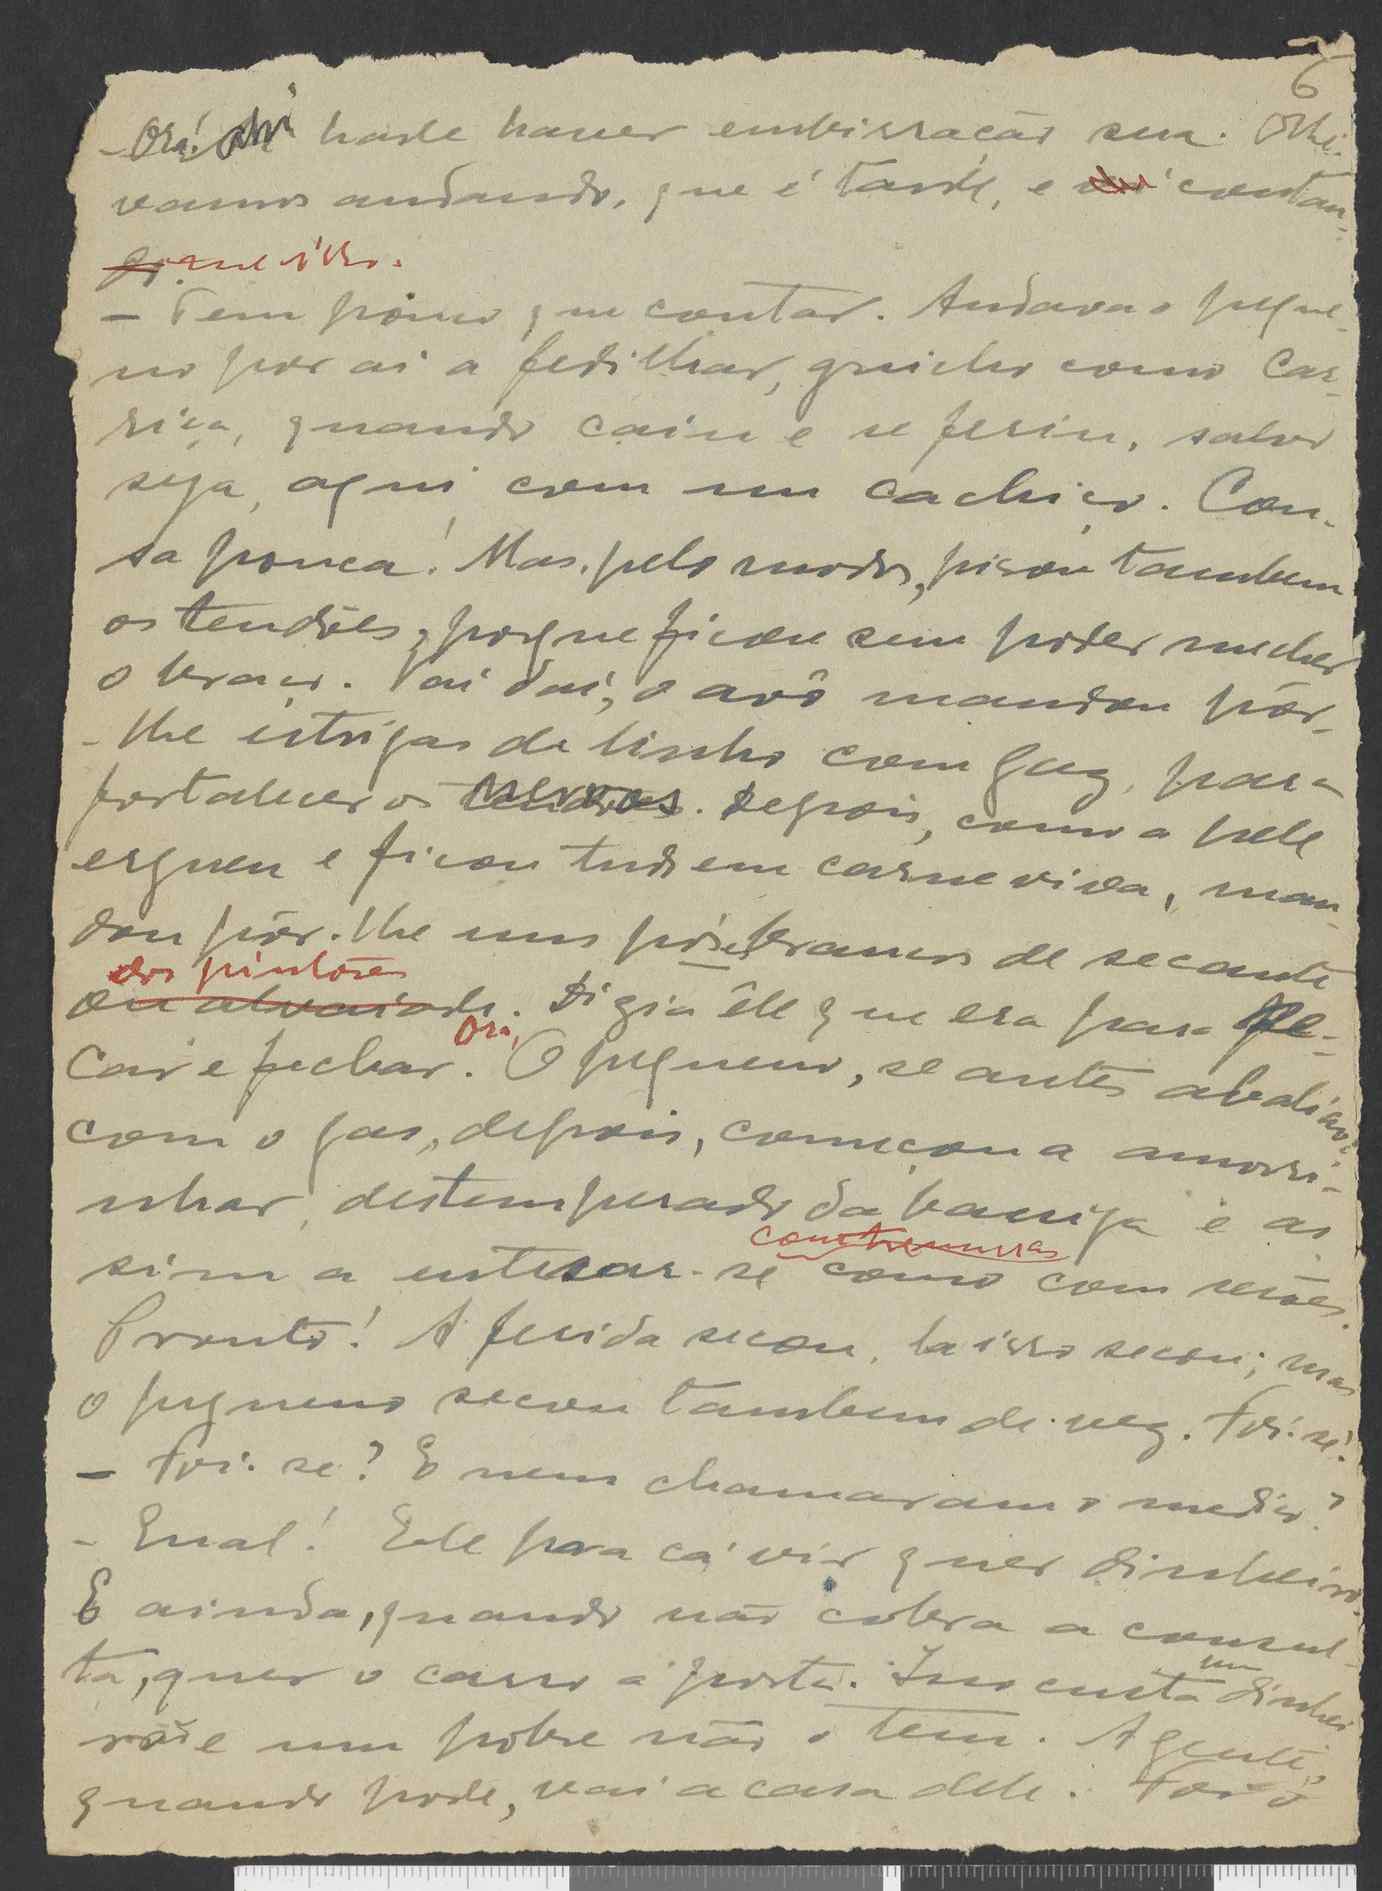 6
- Ora! ahi hade haver embirração sua. Olhe:
vamos andando, que é tarde, e contan-
me isso.
- Tem pouco que contar. Andava o peque-
no por ai a fedilhar, guicho como car-
riça, quando caiu e se feriu, salvo
seja, aqui com um cachiço. Cou-
sa pouca! Mas, pelo modos, pisou tambem
os tendões, porque ficou sem poder mecher
o braço. Vai dai, o avô mandou pôr-
- lhe estrigas de linho com gaz, para
fortalecer os nervos. Depois, como a pele
ergueu e ficou tudo em carne viva, man-
dou pôr-lhe uns pós brancos de secante
dos pintores
ou alvaiade. Dizia êle que era para se-
car e fechar. Ora, O pequeno, se antes
com o gas, depois, começou a amorri-
nhar, destemperado da barriga e as
sim a entesar-se como com sesões.
Pronto! A ferida secou, la isso secou; mas
o pequeno secou tambem de vez. Foi-se!
- Foi-se? E nem chamaram o medico?
- Qual! Ele pra cá vir quer dinheiro.
E ainda, quando não cobra a consul-
ta, quer o carro á porta. Isso custa um dinhei
rão e um pobre não o tem. A gente,
quando pode, vai a casa dele. Foi o